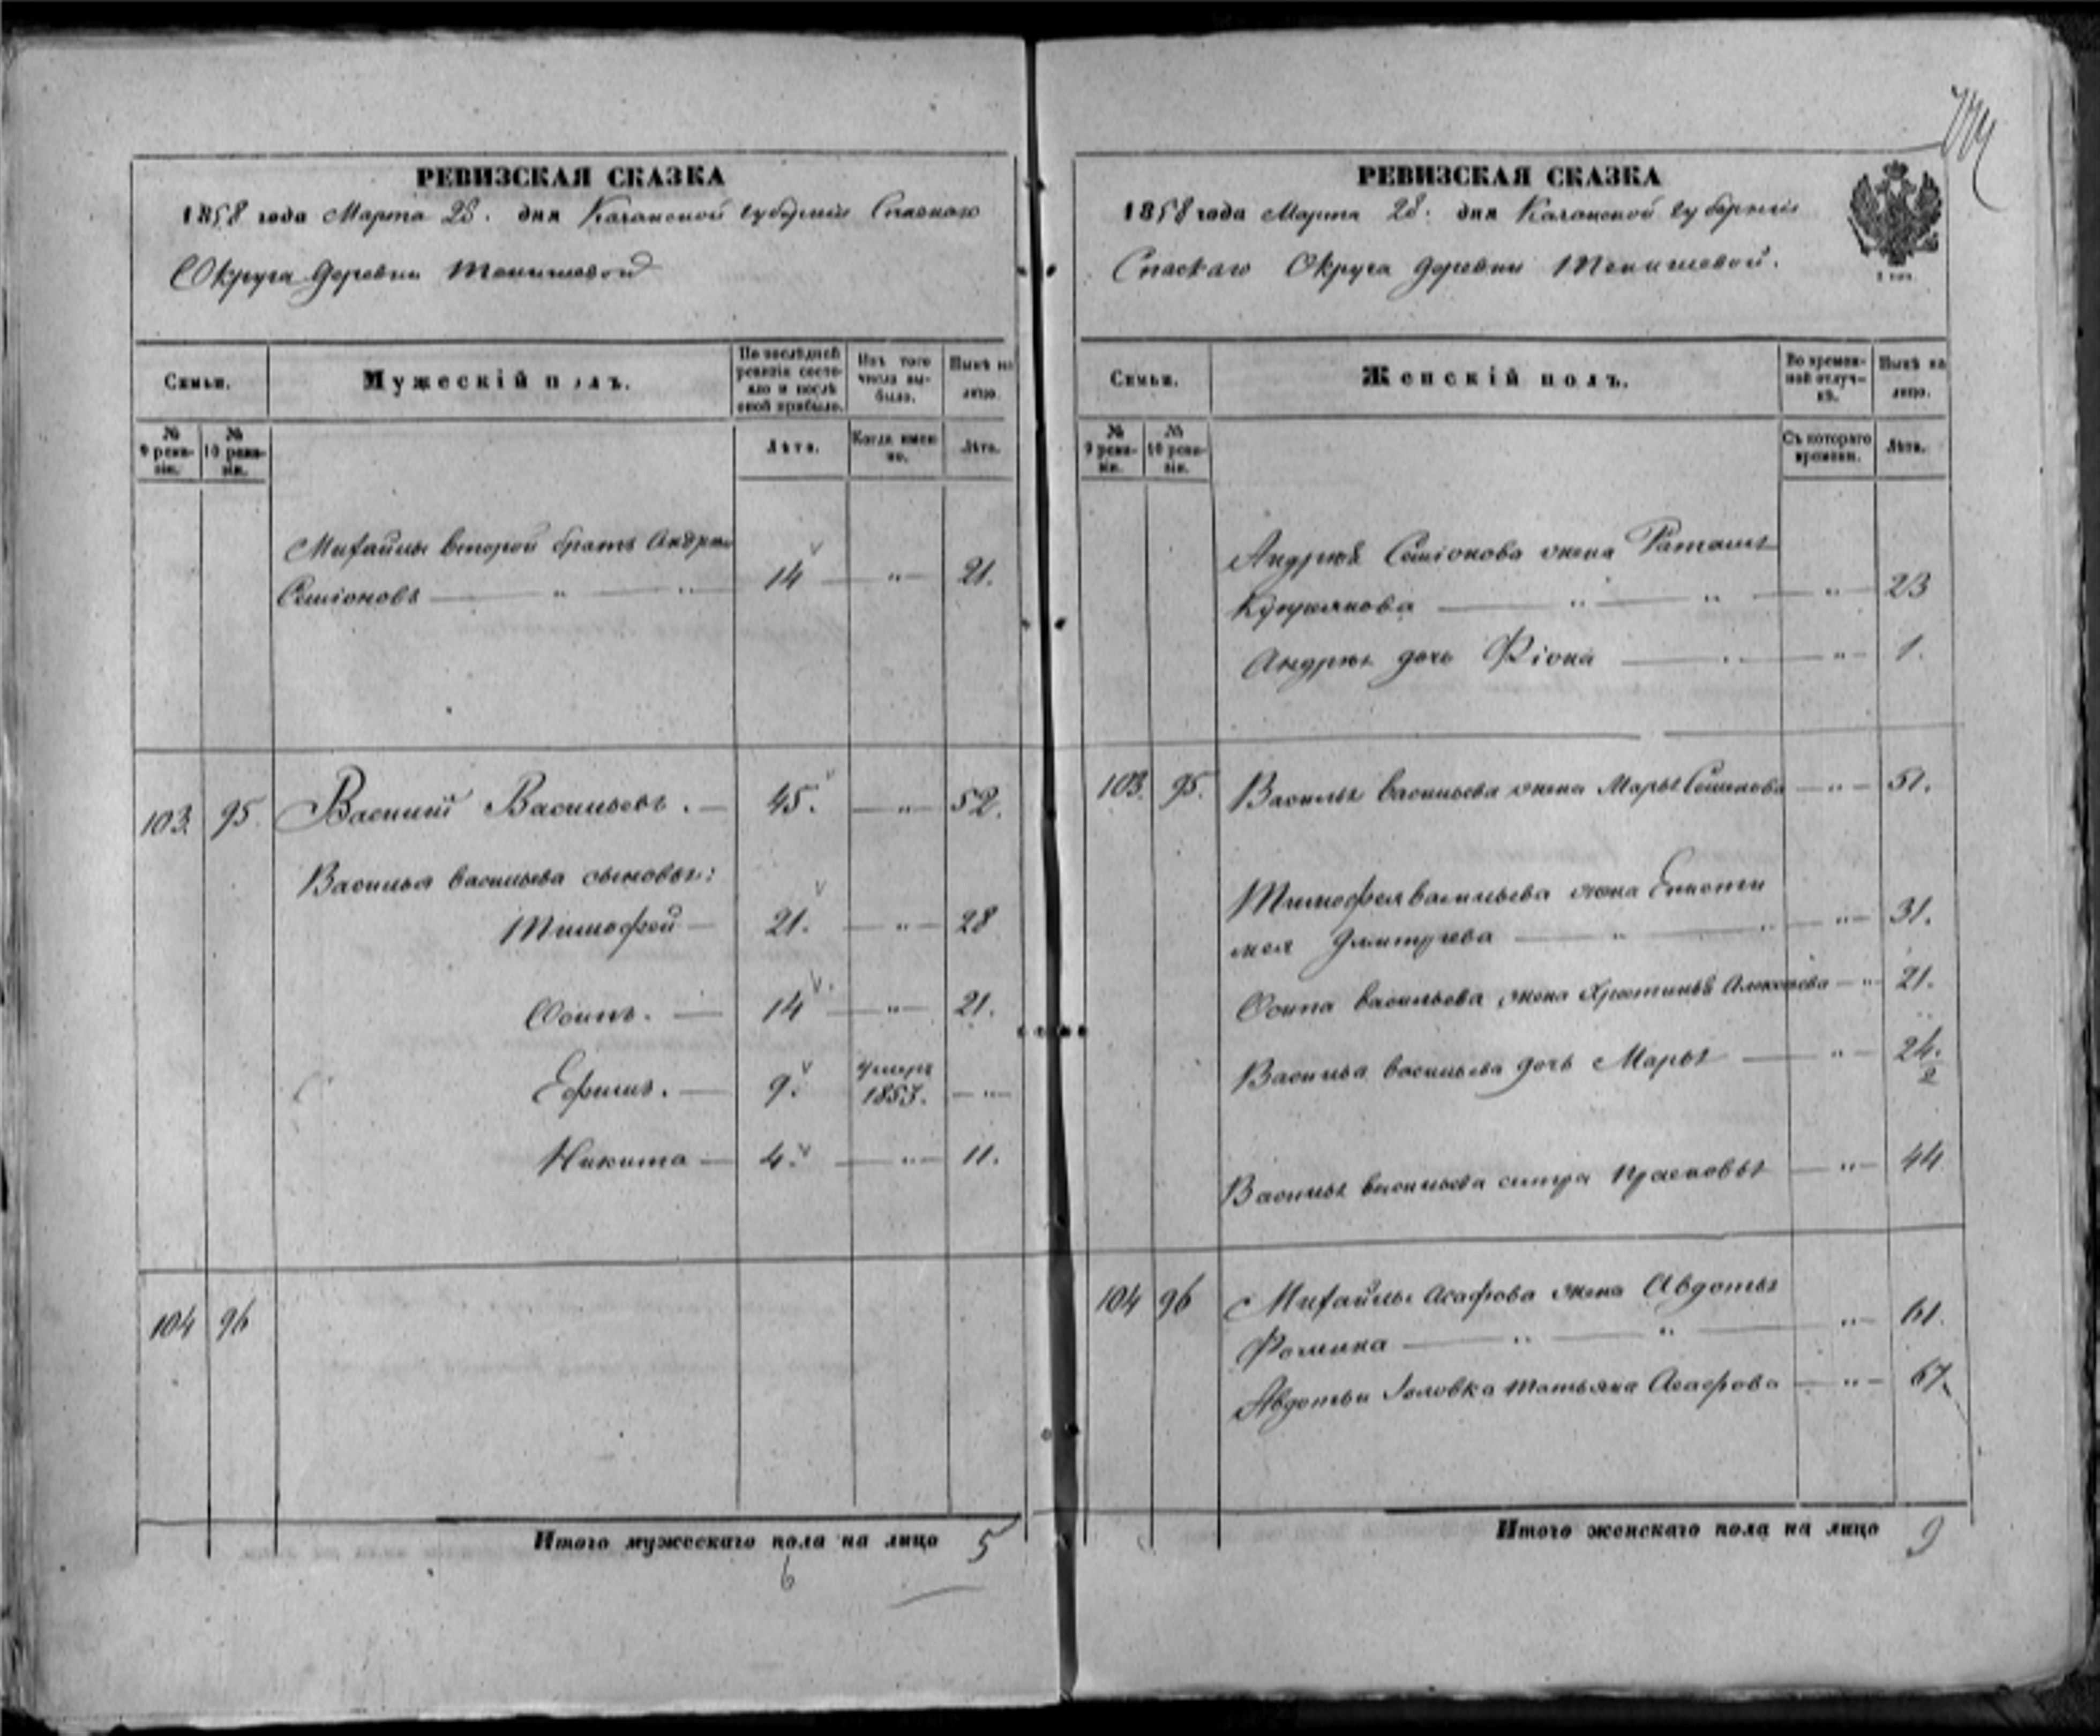 РЕВИЗСКАЯ СКАЗКА
1858 года Марта 28. дня Казанской губернии Спаскаго
Округа деревни Тенишевой
Семьи.
Мужескій полъ.
По послѣдней ревизіи состояло и послѣ оной прибыло.
Изъ того числа выбыло.
Нынѣ на лицо.
№ 9 ревизіи.
№ 10 ревизіи.
Лѣта.
Когда именно.
Лѣта.
Михайлы второй братъ Андрей
Семіоновъ — " — " — 14 — " — 21.
103. 95. Василій Васильевъ. — 45. — " — 52.
Василья Васильева сыновья:
Тимофей — 21. — " — 28
Осипъ. — 14 — " — 21.
Ефимъ. — 9. умеръ 1853. — " —
Никита — 4. — " — 11.
104 96
Итого мужескаго пола на лицо 5
6
РЕВИЗСКАЯ СКАЗКА
1858 года Марта 28. дня Казанской губерніи
Спаскаго Округа деревни Тенишевой.
Семьи.
Женскій полъ.
Во временной отлучкѣ.
Нынѣ на лицо.
№ 9 ревизіи.
№ 10 ревизіи.
Съ котораго времени.
Лѣта.
Андрея Семіонова жена
— " — " — " — 23
Андрея дочь Фіона — " — " — 1.
103. 95. Василья Васильева жена Марья Семенова — " — 51.
Тимофея Васильева жена
Дмитрева — " — " — " — 31.
Осипа Васильева жена Алексѣева — " 21.
Василья Васильева дочь Марья — " — 24.
2
Василья Васильева сестра Прасковья — " — 44
104 96 Михайлы Асафова жена Авдотья
Фомина — " — " — " — 61.
Авдотьи Золовка Татьяна Асафова — " — 67.
Итого женскаго пола на лицо 9